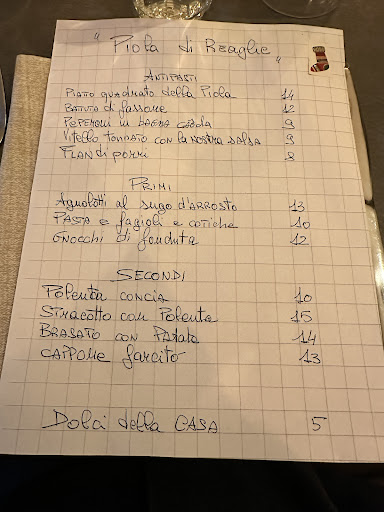 "Piola di Reaglie"
ANTIPASTI
PIATO quadrato della Piola 14
BATUTA di fassone 12
PEPERONI in BAGNA CAODA 9
Vitello TONNATO con la nostra salsa 9
FLAN di porri 8
PRIMI
Agnolotti al sugo d'ARROSTO 13
PASTA e fagioli e cotiche 10
GNOCCHI di fonduta 12
SECONDI
Polenta CONCIA 10
STRACOTTO con Polenta 15
BRASATO con Patate 14
CAPPONE farcito 13
Dolci della CASA 5